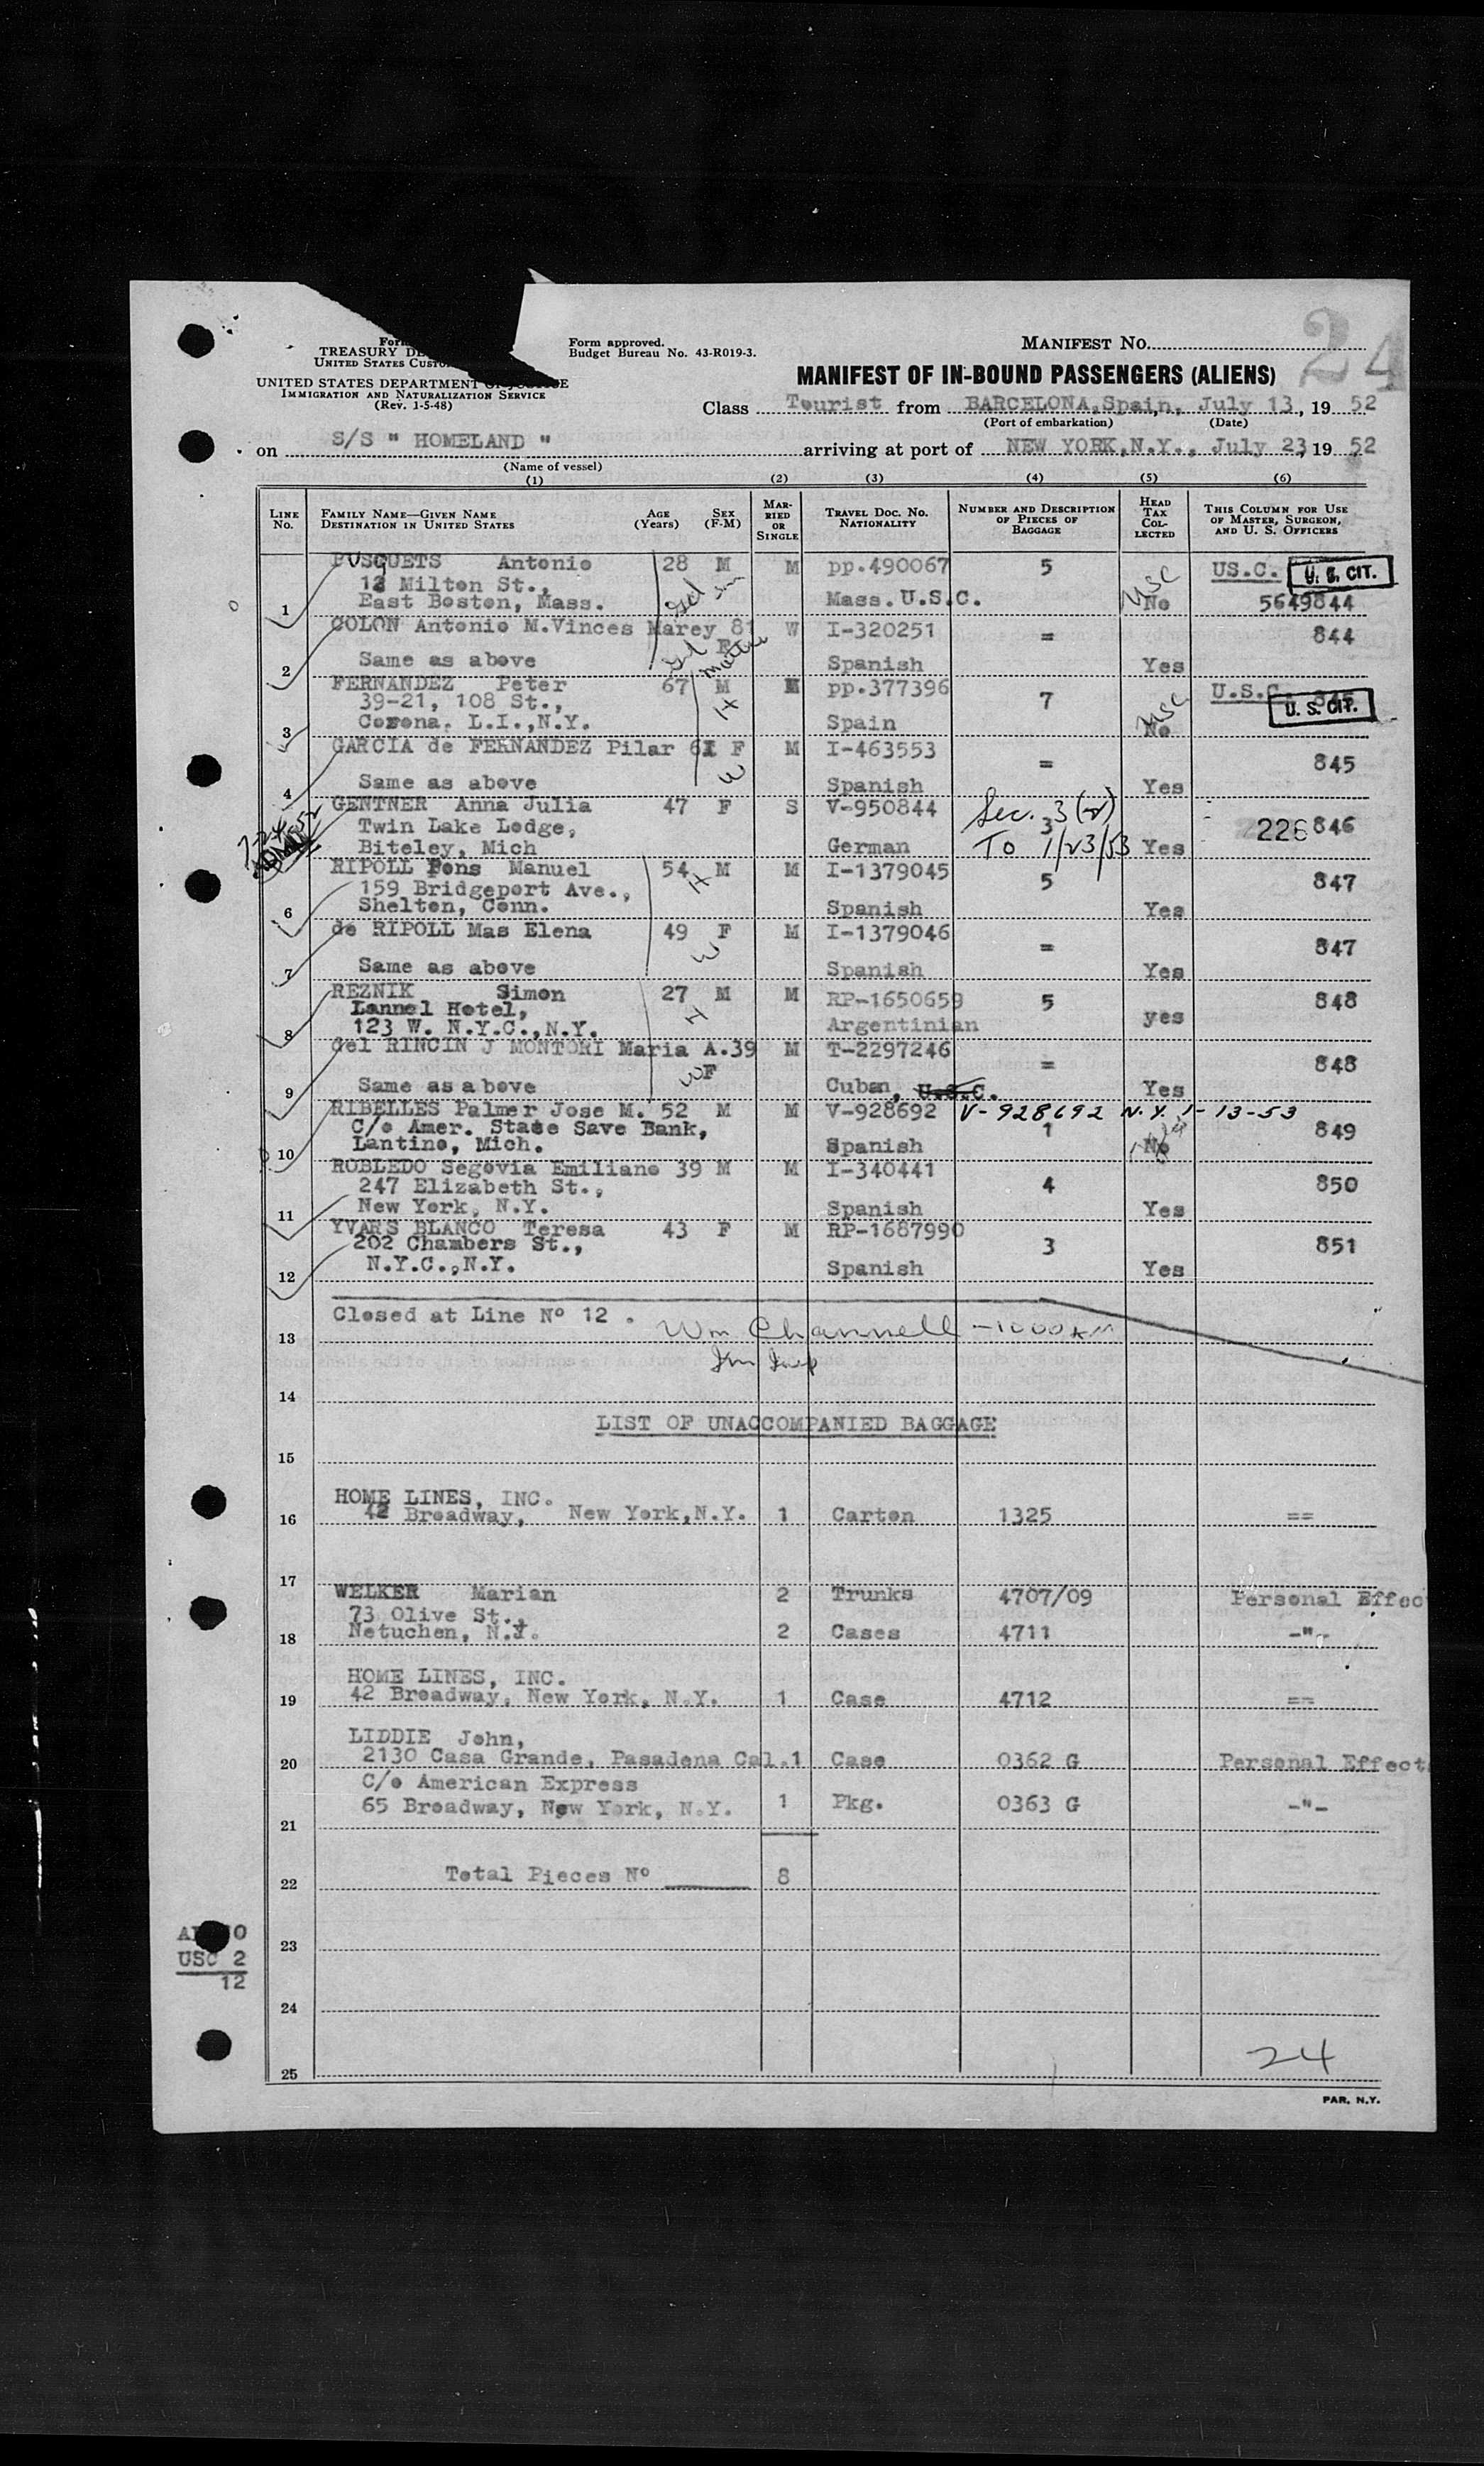 24
Form approved.
Budget Bureau No. 43-R019-3.
MANIFEST No.
TREASURY
UNITED STATES
UNITED STATES DEPARTMENT OF JUSTICE
IMMIGRATION AND NATURALIZATION SERVICE
(Rev. 1-5-48)
MANIFEST OF IN-BOUND PASSENGERS (ALIENS)
Class Tourist from BARCELONA,Spain, July 13, 19 52
(Port of embarkation) (Date)
on S/S " HOMELAND " arriving at port of NEW YORK,N.Y., July 23, 19 52
(Name of vessel)
(1) (2) (3) (4) (5) (6)
LINE No. FAMILY NAME—GIVEN NAME DESTINATION IN UNITED STATES AGE (Years) SEX (F-M) MARRIED OR SINGLE TRAVEL DOC. No. NATIONALITY NUMBER AND DESCRIPTION OF PIECES OF BAGGAGE HEAD TAX COLLECTED THIS COLUMN FOR USE OF MASTER, SURGEON, AND U. S. OFFICERS
BUSQUETS Antonio 28 M M pp.490067 5 US.C. U. S. CIT.
12 Milton St.,
1 East Boston, Mass. Mass. U.S.C. USC No 5649844
COLON Antonio M.Vinces Marey 81 F W I-320251 = 844
2 Same as above Spanish Yes
FERNANDEZ Peter 67 M M pp.377396 7 U.S.C. 845 U. S. CIT.
39-21, 108 St., H
3 Corona. L.I.,N.Y. Spain USC No
GARCIA de FERNANDEZ Pilar 61 F M I-463553 = 845
4 Same as above W Spanish Yes
GENTNER Anna Julia 47 F S V-950844 Sec. 3(2) 3 226 846
Twin Lake Lodge,
Biteley, Mich German To 1/23/53 Yes
RIPOLL Pons Manuel 54 H M M I-1379045 5 847
159 Bridgeport Ave.,
6 Shelton, Conn. Spanish Yes
de RIPOLL Mas Elena 49 F M I-1379046 = 847
7 Same as above W Spanish Yes
REZNIK Simon 27 M M RP-1650659 5 848
Lannel Hotel, H
8 123 W. N.Y.C.,N.Y. Argentinian yes
del RINCIN J MONTORI Maria A.39 F M T-2297246 = 848
9 Same as above W Cuban, U.S.C. Yes
RIBELLES Palmer Jose M. 52 M M V-928692 V-928692 N.Y. 1-13-53
C/o Amer. State Save Bank, 1 849
10 Lantine, Mich. Spanish No
ROBLEDO Segovia Emiliano 39 M M I-340441 4 850
247 Elizabeth St.,
11 New York, N.Y. Spanish Yes
YVARS BLANCO Teresa 43 F M RP-1687990 3 851
202 Chambers St.,
12 N.Y.C.,N.Y. Spanish Yes
Closed at Line Nº 12 .
13 Wm Channell
14
LIST OF UNACCOMPANIED BAGGAGE
15
HOME LINES, INC.
16 42 Broadway, New York,N.Y. 1 Carton 1325 ==
17
WELKER Marian 2 Trunks 4707/09 Personal Effec
73 Olive St.,
18 Netuchen, N.J. 2 Cases 4711 -"-
HOME LINES, INC.
19 42 Broadway, New York, N.Y. 1 Case 4712 ==
LIDDIE John,
20 2130 Casa Grande, Pasadena Cal.1 Case 0362 G Personal Effect
C/o American Express
65 Broadway, New York, N.Y. 1 Pkg. 0363 G -"-
21
22 Total Pieces Nº 8
23
USC 2
12
24
24
25
PAR. N.Y.